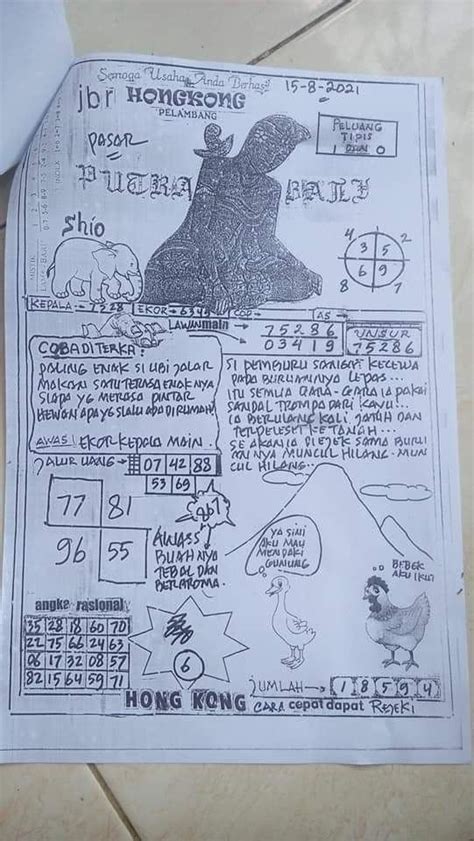 Semoga Usaha Anda Berhasil
15-8-2021
jbr HONGKONG
PELAMBANG
PASAR
PELUANG
TIPIS
1 DAN 0
PUTRA BALI
Shio
4 2
3 5
6 9
8 7
KEPALA = 7528 EKOR = 6345 COP = AS =
LAWANmain → 75286
03419
UNSUR
75286
COBA DI TERKA:
PALING ENAK SI UBI JALAR
MAKAN SATU TERASA ENAKNYA
SIAPA YG MERASA PINTAR
HEWAN APA YG SLALU ADA DIRUMAH
AWAS! EKOR KEPALA MAIN.
SI PEMBURU SANGAT KECEWA
PADA BURUANNYA LEPAS...
ITU SEMUA GARA-GARA IA PAKAI
SANDAL TROMPA DARI KAYU...
IA BERULANG KALI JATUH DAN
TERPELESET KE TANAH...
SE AKAN IA DIEJEK SAMA BURU
ANNYA MUNCUL HILANG. MUN
CUL HILANG..
JALUR UANG → 07 42 88
53 69
77 81
96 55
AWASS
BUAHNYA
TEBAL DAN
BERAROMA.
YA SINI
AKU MAU
MENDAKI
GUNUNG
BEBEK
AKU IKUT
angka rasional
35 28 18 60 70
22 75 66 24 63
06 17 32 08 57
82 15 64 59 71
6
JUMLAH → 1 8 5 9 4
HONG KONG CARA cepat dapat REJEKI